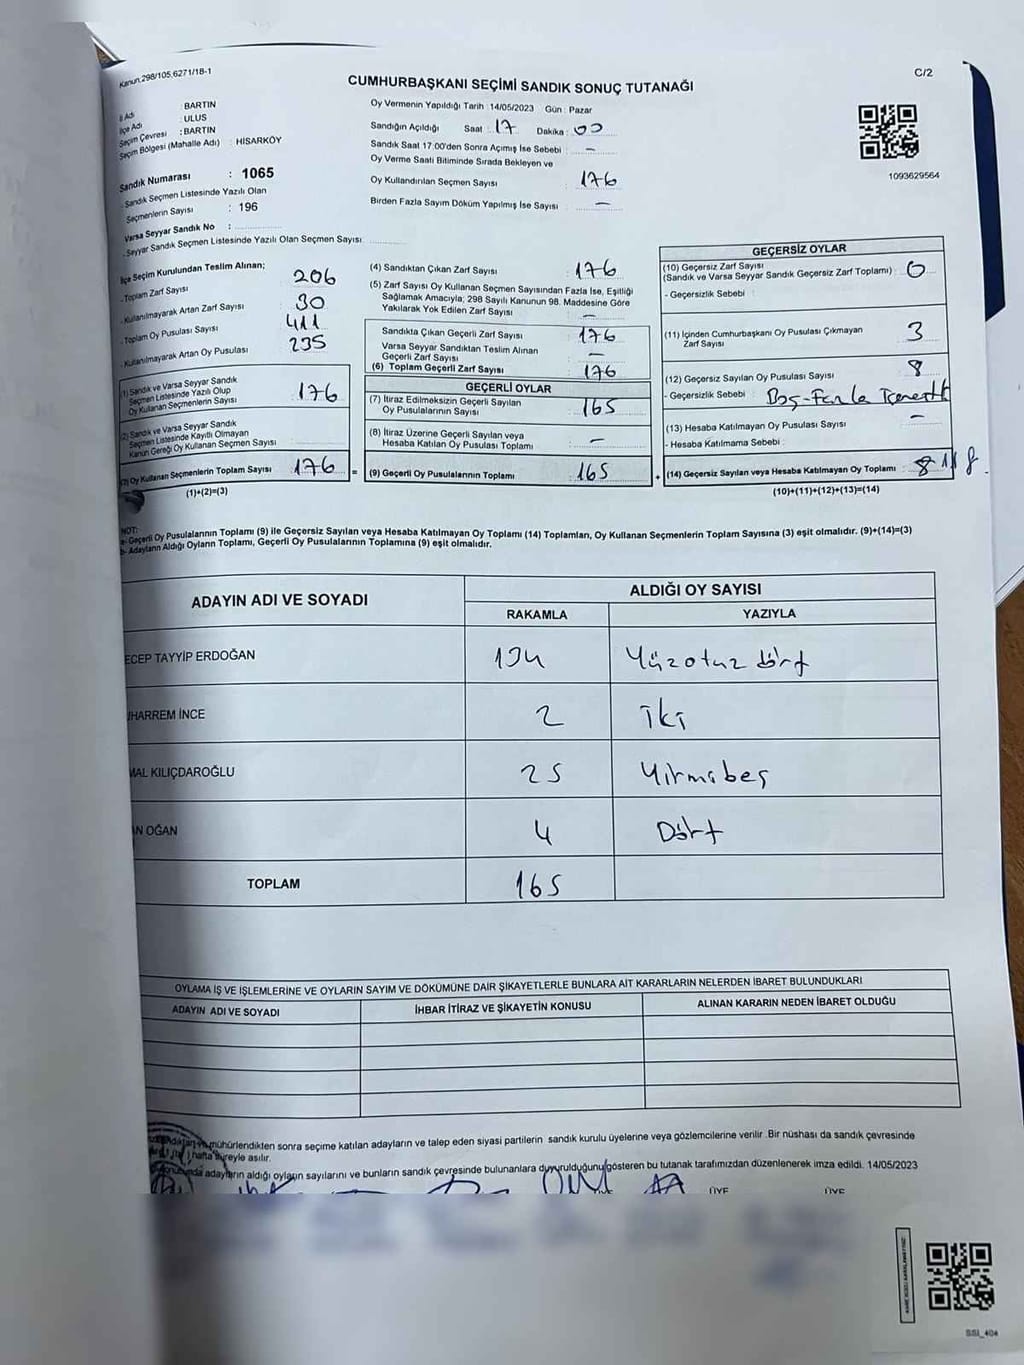 Kanun,298/105,6271/18-1
C/2
CUMHURBAŞKANI SEÇİMİ SANDIK SONUÇ TUTANAĞI
İl Adı BARTIN
İlçe Adı : ULUS
Seçim Çevresi : BARTIN
Seçim Bölgesi (Mahalle Adı) : HİSARKÖY
Sandık Numarası : 1065
- Sandık Seçmen Listesinde Yazılı Olan
Seçmenlerin Sayısı : 196
Varsa Seyyar Sandık No :
- Seyyar Sandık Seçmen Listesinde Yazılı Olan Seçmen Sayısı:
Oy Vermenin Yapıldığı Tarih : 14/05/2023 Gün : Pazar
Sandığın Açıldığı Saat : 17 Dakika : 00
Sandık Saat 17:00'den Sonra Açımış İse Sebebi : –
Oy Verme Saati Bitiminde Sırada Bekleyen ve
Oy Kullandırılan Seçmen Sayısı : 176
Birden Fazla Sayım Döküm Yapılmış İse Sayısı : –
1093629564
İlçe Seçim Kurulundan Teslim Alınan;
- Toplam Zarf Sayısı 206
- Kullanılmayarak Artan Zarf Sayısı 30
- Toplam Oy Pusulası Sayısı 411
- Kullanılmayarak Artan Oy Pusulası 235
(1) Sandık ve Varsa Seyyar Sandık
Seçmen Listesinde Yazılı Olup
Oy Kullanan Seçmenlerin Sayısı 176
(2) Sandık ve Varsa Seyyar Sandık
Seçmen Listesinde Kayıtlı Olmayan
Kanun Gereği Oy Kullanan Seçmen Sayısı :
(3) Oy Kullanan Seçmenlerin Toplam Sayısı 176 =
(1)+(2)=(3)
(4) Sandıktan Çıkan Zarf Sayısı : 176
(5) Zarf Sayısı Oy Kullanan Seçmen Sayısından Fazla İse, Eşitliği
Sağlamak Amacıyla; 298 Sayılı Kanunun 98. Maddesine Göre
Yakılarak Yok Edilen Zarf Sayısı : –
Sandıkta Çıkan Geçerli Zarf Sayısı : 176
Varsa Seyyar Sandıktan Teslim Alınan
Geçerli Zarf Sayısı : –
(6) Toplam Geçerli Zarf Sayısı : 176
GEÇERLİ OYLAR
(7) İtiraz Edilmeksizin Geçerli Sayılan
Oy Pusulalarının Sayısı : 165
(8) İtiraz Üzerine Geçerli Sayılan veya
Hesaba Katılan Oy Pusulası Toplamı : –
(9) Geçerli Oy Pusulalarının Toplamı : 165 +
GEÇERSİZ OYLAR
(10) Geçersiz Zarf Sayısı
(Sandık ve Varsa Seyyar Sandık Geçersiz Zarf Toplamı) : 0
- Geçersizlik Sebebi :
(11) İçinden Cumhurbaşkanı Oy Pusulası Çıkmayan
Zarf Sayısı : 3
(12) Geçersiz Sayılan Oy Pusulası Sayısı : 8
- Geçersizlik Sebebi : Boş-Fazla
(13) Hesaba Katılmayan Oy Pusulası Sayısı : –
- Hesaba Katılmama Sebebi :
(14) Geçersiz Sayılan veya Hesaba Katılmayan Oy Toplamı : 8
(10)+(11)+(12)+(13)=(14)
NOT:
a- Geçerli Oy Pusulalarının Toplamı (9) ile Geçersiz Sayılan veya Hesaba Katılmayan Oy Toplamı (14) Toplamları, Oy Kullanan Seçmenlerin Toplam Sayısına (3) eşit olmalıdır. (9)+(14)=(3)
b- Adayların Aldığı Oyların Toplamı, Geçerli Oy Pusulalarının Toplamına (9) eşit olmalıdır.
ADAYIN ADI VE SOYADI
ALDIĞI OY SAYISI
RAKAMLA YAZIYLA
ECEP TAYYİP ERDOĞAN 134 Yüzotuz dört
HARREM İNCE 2 iki
MAL KILIÇDAROĞLU 25 Yirmibeş
N OĞAN 4 Dört
TOPLAM 165
OYLAMA İŞ VE İŞLEMLERİNE VE OYLARIN SAYIM VE DÖKÜMÜNE DAİR ŞİKAYETLERLE BUNLARA AİT KARARLARIN NELERDEN İBARET BULUNDUKLARI
ADAYIN ADI VE SOYADI İHBAR İTİRAZ VE ŞİKAYETİN KONUSU ALINAN KARARIN NEDEN İBARET OLDUĞU
mühürlendikten sonra seçime katılan adayların ve talep eden siyasi partilerin sandık kurulu üyelerine veya gözlemcilerine verilir. Bir nüshası da sandık çevresinde
hafta süreyle asılır.
adayların aldığı oyların sayılarını ve bunların sandık çevresinde bulunanlara duyurulduğunu gösteren bu tutanak tarafımızdan düzenlenerek imza edildi. 14/05/2023
ÜYE ÜYE
SSİ_404